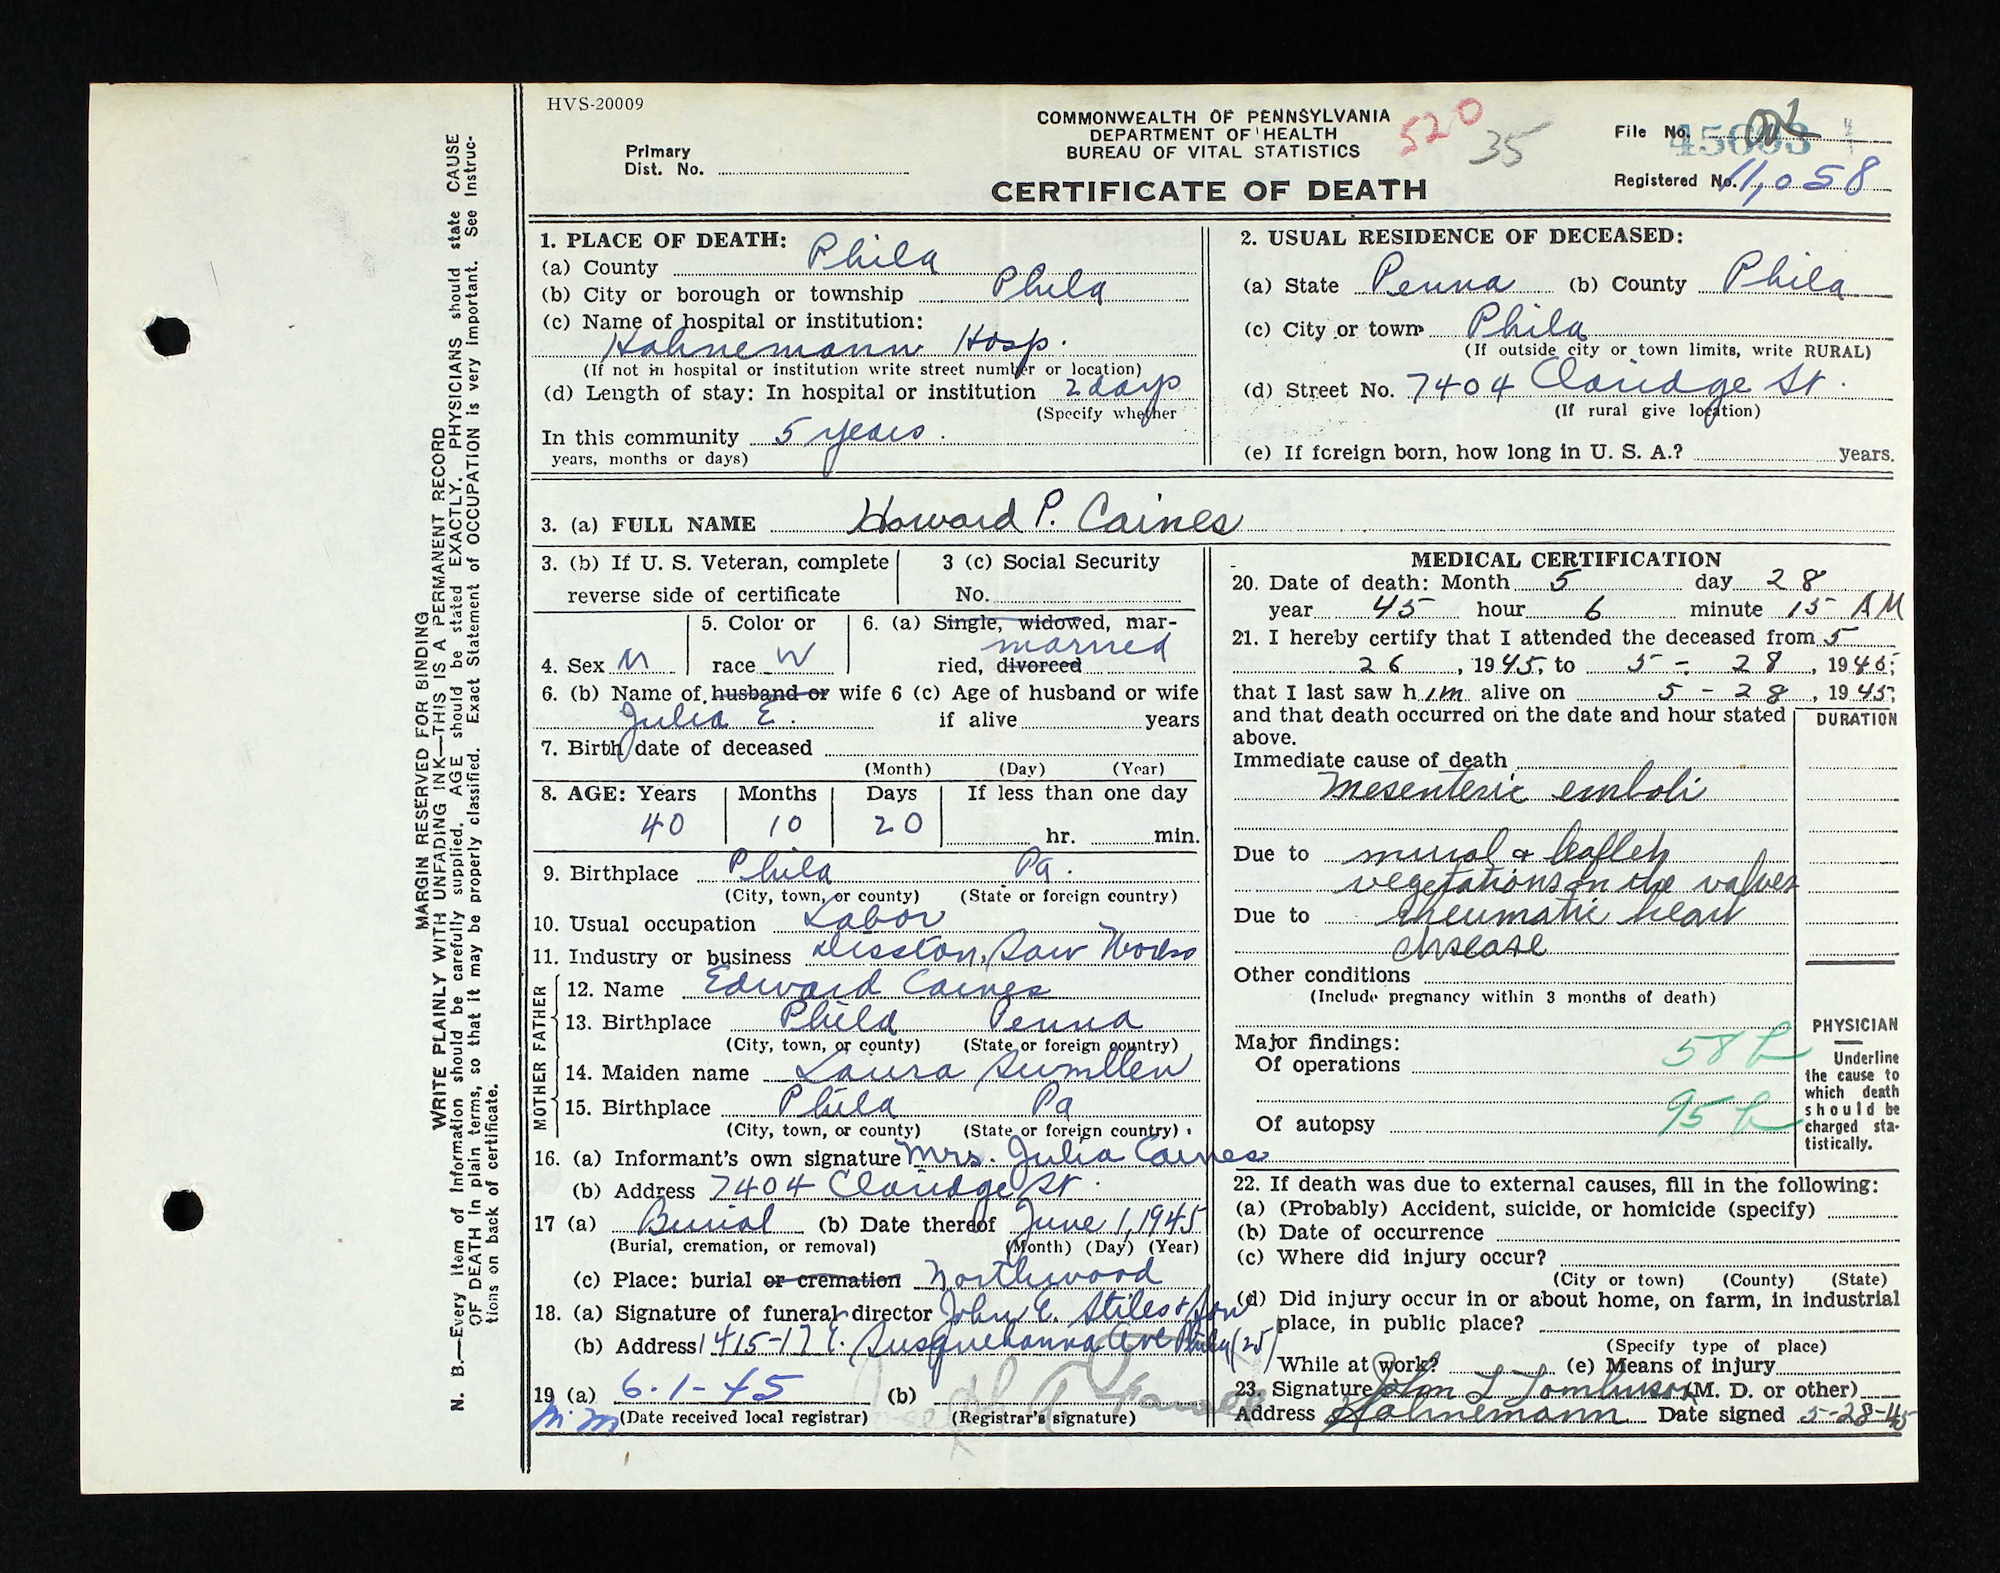 HVS-20009
COMMONWEALTH OF PENNSYLVANIA
DEPARTMENT OF HEALTH
BUREAU OF VITAL STATISTICS
CERTIFICATE OF DEATH
520
35
Primary
Dist. No.
File No.
Registered No. 11,058
MARGIN RESERVED FOR BINDING
WRITE PLAINLY WITH UNFADING INK—THIS IS A PERMANENT RECORD
N. B.—Every item of information should be carefully supplied. AGE should be stated EXACTLY. PHYSICIANS should state CAUSE
OF DEATH in plain terms, so that it may be properly classified. Exact Statement of OCCUPATION is very important. See Instruc-
tions on back of certificate.
1. PLACE OF DEATH:
(a) County Phila
(b) City or borough or township Phila
(c) Name of hospital or institution:
Hahnemann Hosp.
(If not in hospital or institution write street number or location)
(d) Length of stay: In hospital or institution 2 days
(Specify whether
In this community 5 years.
years, months or days)
2. USUAL RESIDENCE OF DECEASED:
(a) State Penna (b) County Phila
(c) City or town Phila
(If outside city or town limits, write RURAL)
(d) Street No. 7404 Claridge St.
(If rural give location)
(e) If foreign born, how long in U. S. A.? years.
3. (a) FULL NAME Howard P. Caines
3. (b) If U. S. Veteran, complete
reverse side of certificate
3 (c) Social Security
No.
4. Sex M
5. Color or
race W
6. (a) Single, widowed, mar-
married
ried, divorced
6. (b) Name of husband or wife
Julia E.
6 (c) Age of husband or wife
if alive years
7. Birth date of deceased
(Month) (Day) (Year)
8. AGE: Years Months Days If less than one day
40 10 20 hr. min.
9. Birthplace Phila Pa.
(City, town, or county) (State or foreign country)
10. Usual occupation Labor
11. Industry or business Disston Saw Works
FATHER
12. Name Edward Caines
13. Birthplace Phila Penna
(City, town, or county) (State or foreign country)
MOTHER
14. Maiden name Laura
15. Birthplace Phila Pa
(City, town, or county) (State or foreign country)
16. (a) Informant's own signature Mrs. Julia Caines
(b) Address 7404 Claridge St.
17 (a) Burial (b) Date thereof June 1, 1945
(Burial, cremation, or removal) (Month) (Day) (Year)
(c) Place: burial or cremation Northwood
18. (a) Signature of funeral director John E. Stiles & Son
(b) Address 1415-17 E. Susquehanna Ave Phila (25)
19 (a) 6-1-45 (b)
M.M (Date received local registrar) (Registrar's signature)
MEDICAL CERTIFICATION
20. Date of death: Month 5 day 28
year 45 hour 6 minute 15 AM
21. I hereby certify that I attended the deceased from 5
26, 1945, to 5 - 28, 1945;
that I last saw him alive on 5 - 28, 1945;
and that death occurred on the date and hour stated
above.
DURATION
Immediate cause of death
Mesenteric emboli
Due to mural & leaflet
vegetations on the valves
Due to rheumatic heart
disease
Other conditions
(Include pregnancy within 3 months of death)
Major findings:
Of operations 58
Of autopsy 95
PHYSICIAN
Underline
the cause to
which death
should be
charged sta-
tistically.
22. If death was due to external causes, fill in the following:
(a) (Probably) Accident, suicide, or homicide (specify)
(b) Date of occurrence
(c) Where did injury occur?
(City or town) (County) (State)
(d) Did injury occur in or about home, on farm, in industrial
place, in public place?
(Specify type of place)
While at work? (e) Means of injury
23. Signature John L Tomlinson (M. D. or other)
Address Hahnemann Date signed 5-28-45